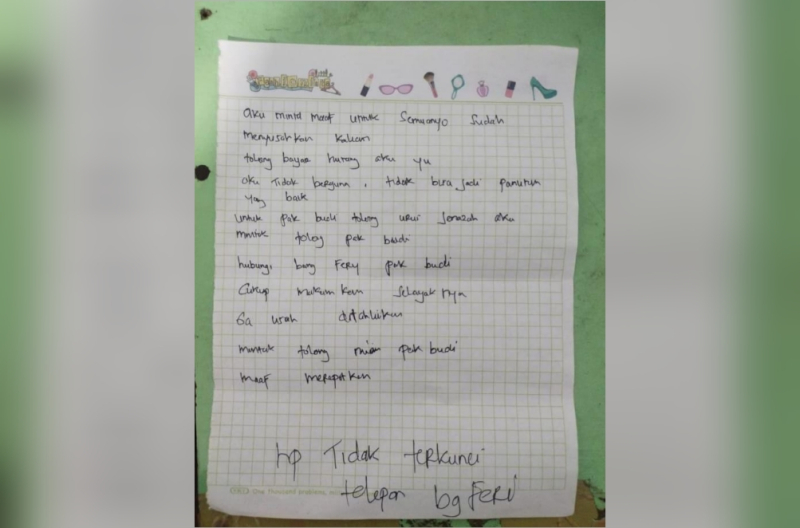 aku minta maaf untuk semuanyo sudah
menyusahkan kalian
tolong bayar hutang aku yu
aku tidak berguna, tidak bisa jadi panutan
yang baik
untuk pak budi tolong urus jenazah aku
mintak tolog pak budi
hubungi bang Fery pak budi
Cukup makamkan selayaknya
Ga usah ditahlilkan
mintak tolong pak budi
maaf merepotkan
hp Tidak terkunci
telepon bg FERI